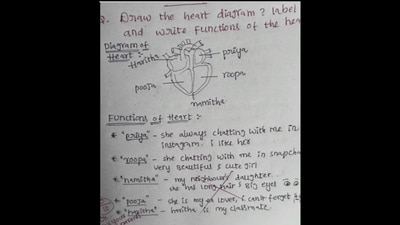 Q. Draw the heart diagram? label
and write functions of the hea
Diagram of
Heart :-
Haritha
priya
pooja
roopa
namitha
Functions of Heart :-
* "priya" - she always chatting with me in
instagram. I like her
* "roopa" - she chatting with me in snapcha
very beautiful & cute girl
* "namitha" - my neighbour's daughter..
she has long hair & Big eyes
* "pooja" - she is my ex lover, i can't forget
* "haritha" - haritha is my classmate.